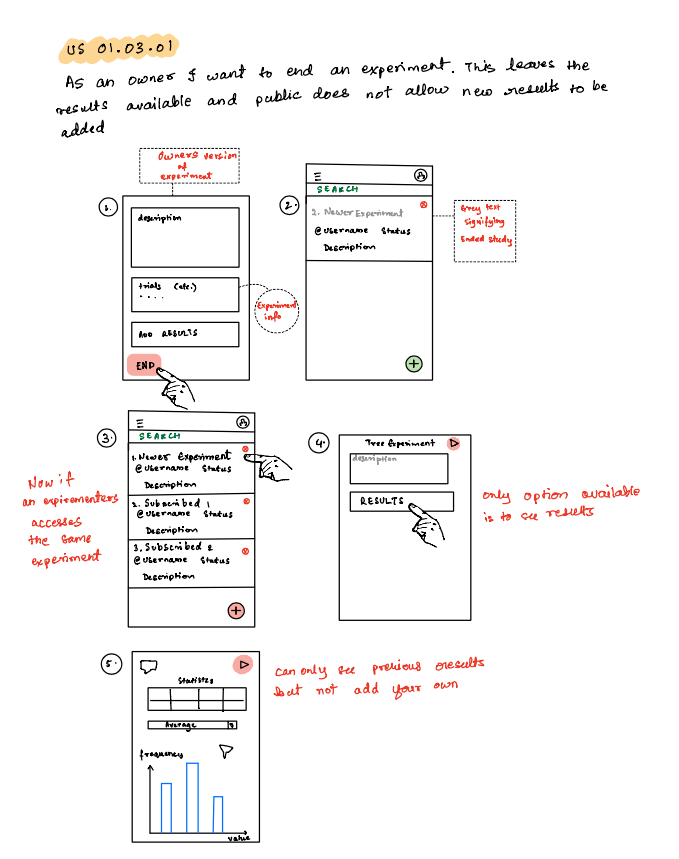 US 01.03.01
As an owner I want to end an experiment. This leaves the
results available and public does not allow new results to be
added
Owners version
of
experiment
1.
description
trials (etc.)
....
ADD RESULTS
END
Experiment
info
2.
SEARCH
2. Newer Experiment
@Username Status
Description
Grey text
signifying
Ended study
3.
SEARCH
1. Newer Experiment
@Username Status
Description
2. Subscribed 1
@Username Status
Description
3. Subscribed 2
@Username Status
Description
Now if
an expirementers
accesses
the same
experiment
4.
Tree Experiment
description
RESULTS
only option available
is to see results
5.
Statistics
Average
frequency
value
can only see previous results
but not add your own